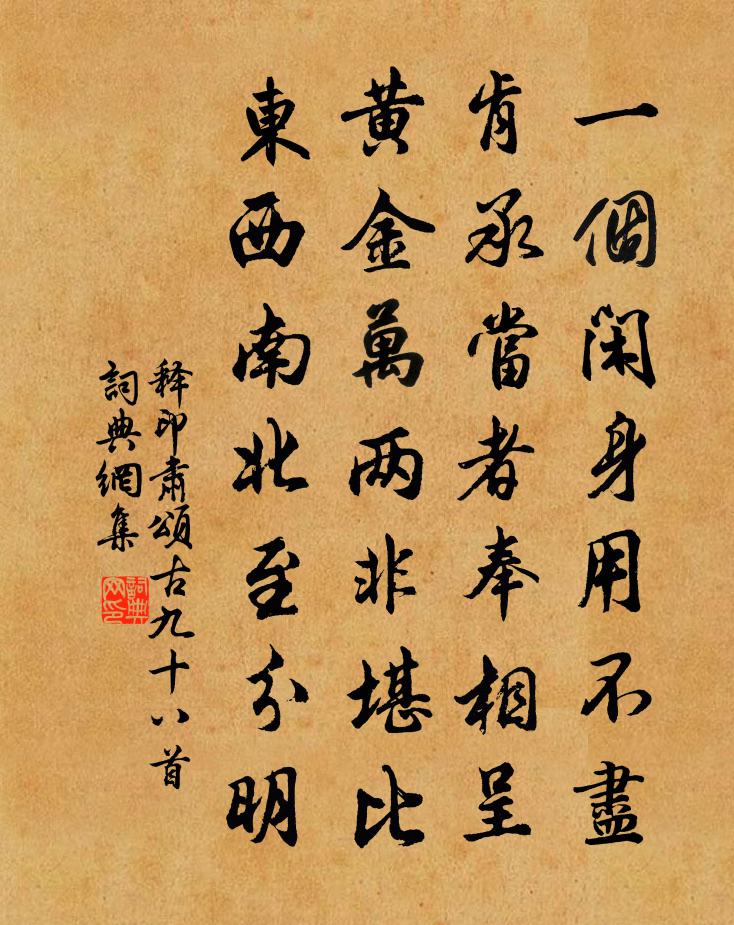 一個閑身用不盡
肯承當者奉相呈
黄金萬两非堪比
東西南北至分明
释印肅頌古九十八首
詞典網集
詞典網印